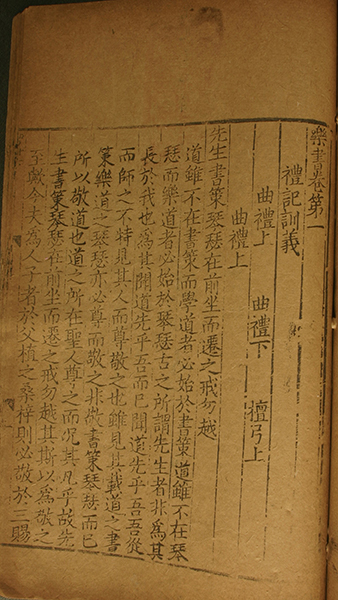 樂書卷第一
禮記訓義
曲禮上 曲禮下 檀弓上
曲禮上
先生書策琴瑟在前坐而遷之戒勿越
道雖不在書策而學道者必始於書策道雖不在琴
瑟而樂道者必始於琴瑟古之所謂先生者非為其
長於我也為其聞道先乎吾而已聞道先乎吾吾從
而師之不特見其人而尊敬之也雖見其載道之書
策樂道之琴瑟亦必尊而敬之非敬書策琴瑟而已
所以敬道也道之所在聖人尊之而況其凡乎故先
生書策琴瑟在前坐而遷之戒勿越其斯以為敬之
至歟今夫為人子者於父植之桑梓則必敬於三賜